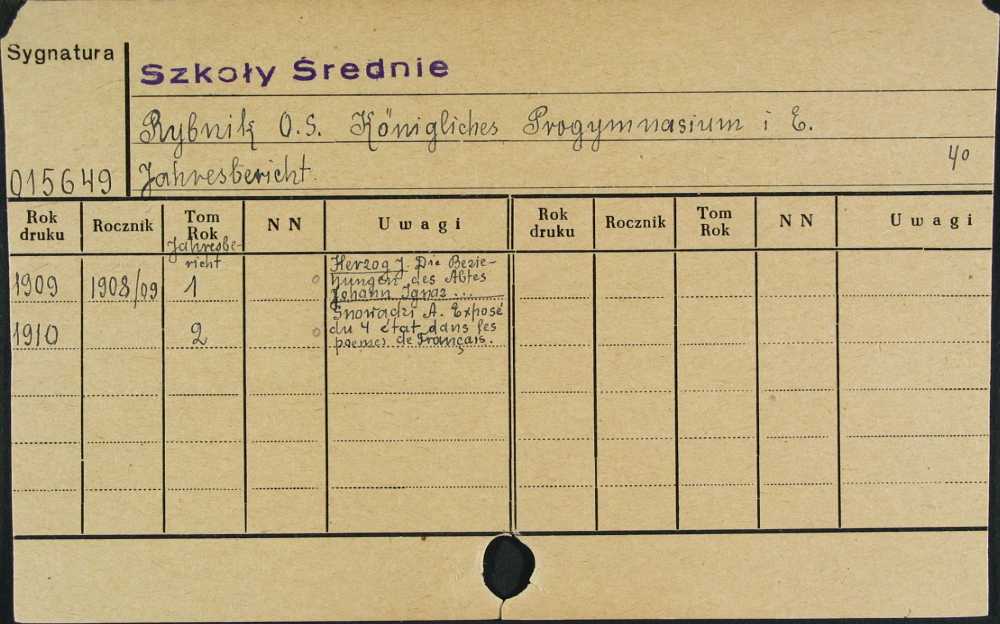 Sygnatura
Szkoły Średnie
Rybnik O.S. Königliches Progymnasium i E.
015649 Jahresbericht. 4o
Rok druku Rocznik Tom Rok N N Uwagi Rok druku Rocznik Tom Rok N N Uwagi
Jahresbe-
richt
1909 1908/09 1 Herzog J. Die Bezie-
hungen des Abtes
Johann Ignaz ...
1910 2 Snowadzi A. Exposé
du 4 état dans les
poemes de Français.